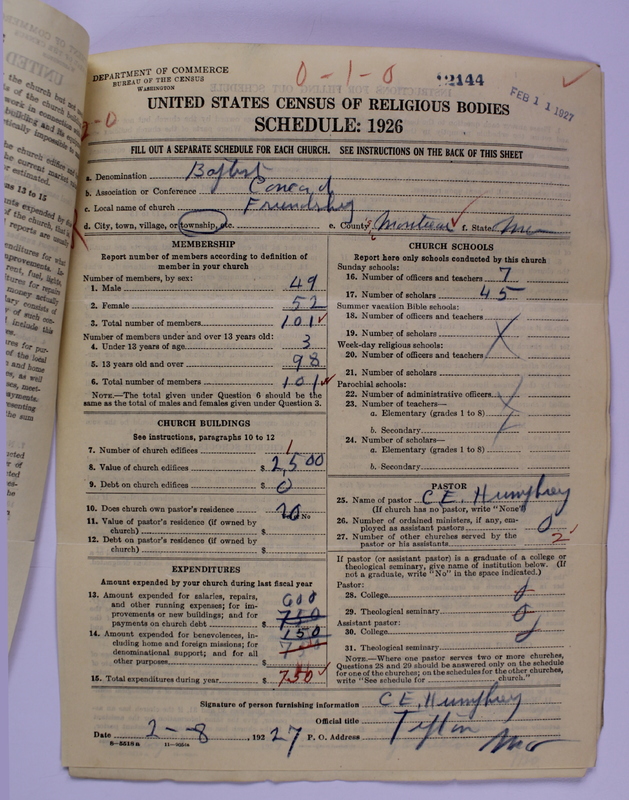 DEPARTMENT OF COMMERCE
BUREAU OF THE CENSUS
WASHINGTON
0-1-0
12144
FEB 11 1927
UNITED STATES CENSUS OF RELIGIOUS BODIES
SCHEDULE: 1926
FILL OUT A SEPARATE SCHEDULE FOR EACH CHURCH. SEE INSTRUCTIONS ON THE BACK OF THIS SHEET
a. Denomination Baptist
b. Association or Conference Concord
c. Local name of church Friendship
d. City, town, village, or township, etc. e. County Moniteau f. State Mo
MEMBERSHIP
Report number of members according to definition of
member in your church
Number of members, by sex:
1. Male 49
2. Female 52
3. Total number of members 101
Number of members under and over 13 years old:
4. Under 13 years of age 3
5. 13 years old and over 98
6. Total number of members 101
NOTE.—The total given under Question 6 should be the
same as the total of males and females given under Question 3.
CHURCH BUILDINGS
See instructions, paragraphs 10 to 12
7. Number of church edifices 1
8. Value of church edifices $ 2,500
9. Debt on church edifices $ 0
10. Does church own pastor's residence? no No
11. Value of pastor's residence (if owned by
church) $
12. Debt on pastor's residence (if owned by
church) $
EXPENDITURES
Amount expended by your church during last fiscal year
13. Amount expended for salaries, repairs,
and other running expenses; for im-
provements or new buildings; and for
payments on church debt $ 600 750
14. Amount expended for benevolences, in-
cluding home and foreign missions; for
denominational support; and for all
other purposes $ 150
15. Total expenditures during year $ 750
CHURCH SCHOOLS
Report here only schools conducted by this church
Sunday schools:
16. Number of officers and teachers 7
17. Number of scholars 45
Summer vacation Bible schools:
18. Number of officers and teachers
19. Number of scholars
Week-day religious schools:
20. Number of officers and teachers
21. Number of scholars
Parochial schools:
22. Number of administrative officers
23. Number of teachers—
a. Elementary (grades 1 to 8)
b. Secondary
24. Number of scholars—
a. Elementary (grades 1 to 8)
b. Secondary
PASTOR
25. Name of pastor C E. Humphrey
(If church has no pastor, write "None")
26. Number of ordained ministers, if any, em-
ployed as assistant pastors 0
27. Number of other churches served by the
pastor or his assistants 2
If pastor (or assistant pastor) is a graduate of a college or
theological seminary, give name of institution below. (If
not a graduate, write "No" in the space indicated.)
Pastor:
28. College 0
29. Theological seminary 0
Assistant pastor:
30. College 0
31. Theological seminary
NOTE.—Where one pastor serves two or more churches,
Questions 28 and 29 should be answered only on the schedule
for one of the churches; on the schedules for the other churches,
write "See schedule for church."
Signature of person furnishing information C E. Humphrey
Official title
Date 2-8, 1927 P. O. Address Tipton Mo
8-5518a